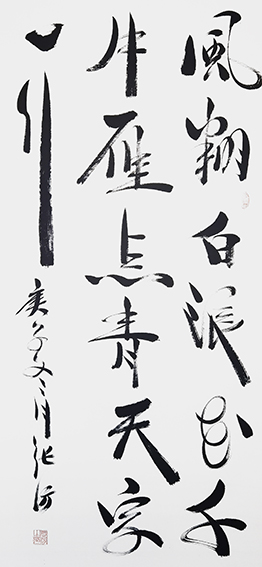 風翻白浪花千
片雁点青天字
一行
庚子冬月張